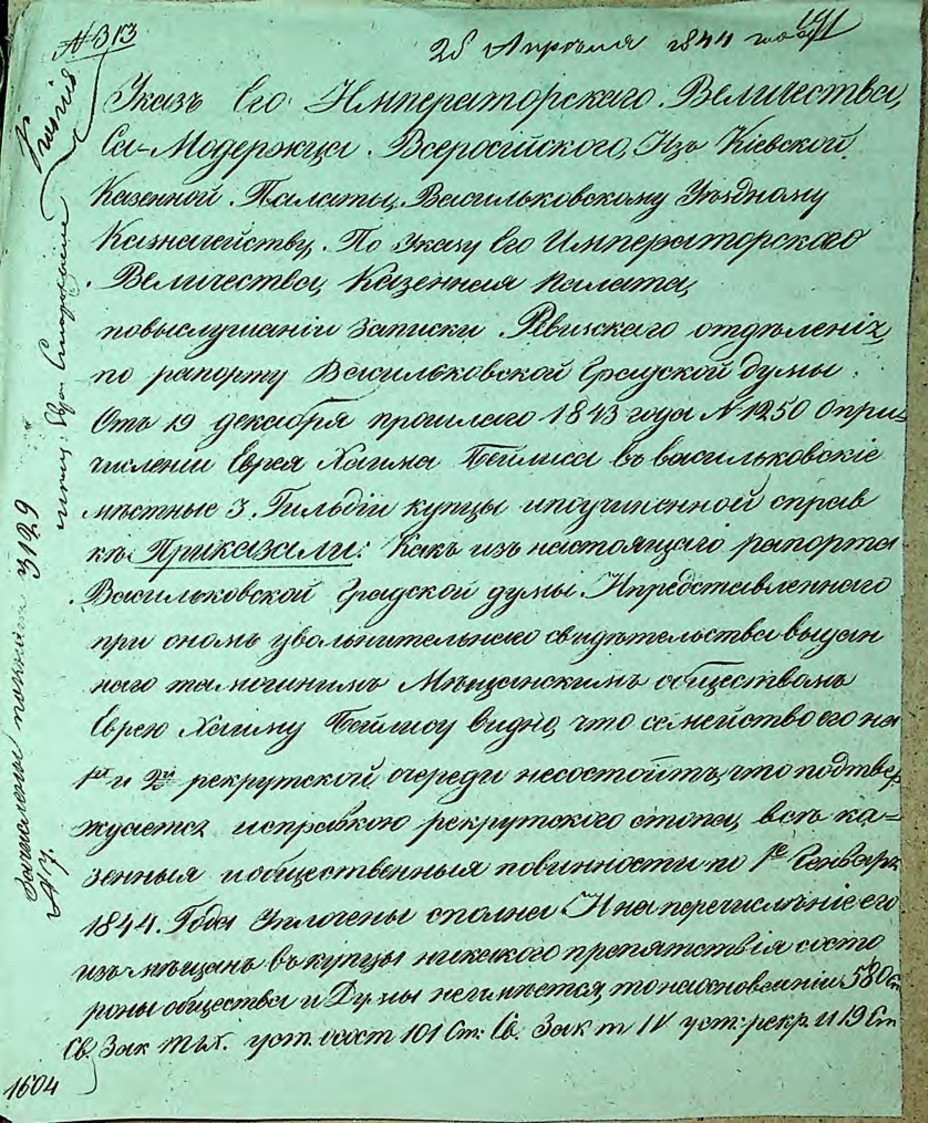 № 313
28 Апреля 1844 года
Указъ Его Императорскаго Величества,
Са-Модержца Всеросiйскаго, Изъ Кiевской
Казенной Палаты, Васильковскому Уѣздному
Казначейству, По Указу Его Императорскаго
Величества, Казенная Палата,
повыслушанiи Записки Ревизскаго отдѣленiя,
по рапорту Васильковской Градской думы
Отъ 19 декабря прошлаго 1843 года № 1250 О при-
численiи Еврея Хаима Бейлиса въ васильковскiе
мѣстные 3. Гильдiи купцы и поучиненной справ
кѣ Приказали: Какъ изъ настоящаго рапорта
Васильковской Градской думы И представленнаго
при ономъ увольнительнаго свидѣтельства выдан
наго тамошнимъ Мѣщанскимъ обществомъ
Еврею Хаиму Бейлису видно, что семейство его на
1й и 2й рекрутской очереди несостоитъ, что подтвер
ждается исправкою рекрутскаго стола, всѣ ка-
зенныя и общественныя повинности по 1е Генваря
1844. Года Уплочены сполна И на перечисленiе его
изъ мѣщанъ въ купцы никакого препятствiя состо
роны общества и Думы неимѣется, то наосновании 580 Ст
Св. Зак т IX. уст. о сост 101 Ст: Св. Зак т IV уст: рекр. и 19 Ст
3129
№ 17.
1604